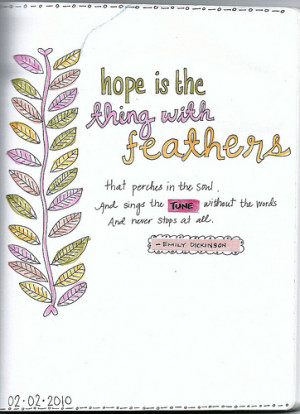 hope is the
thing with
feathers
that perches in the soul,
And sings the TUNE without the words
And never stops at all.
- EMILY DICKINSON
02.02.2010